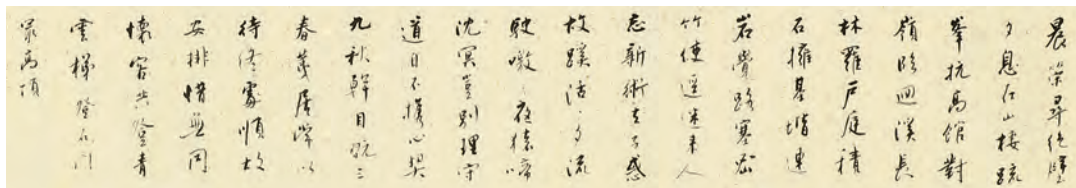 晨策尋絕壁
夕息在山棲疏
峯抗高館對
嶺臨迴溪長
林羅戶庭積
石擁基階連
岩覺路塞密
竹使逕迷来人
忘新術去子惑
故蹊活〻夕流
駛噭〻夜猿啼
沈冥豈別理守
道自不攜心契
九秋幹目翫三
春荑居常以
待終處順故
安排惜無同
懷客共登青
雲梯 登石門
最高頂